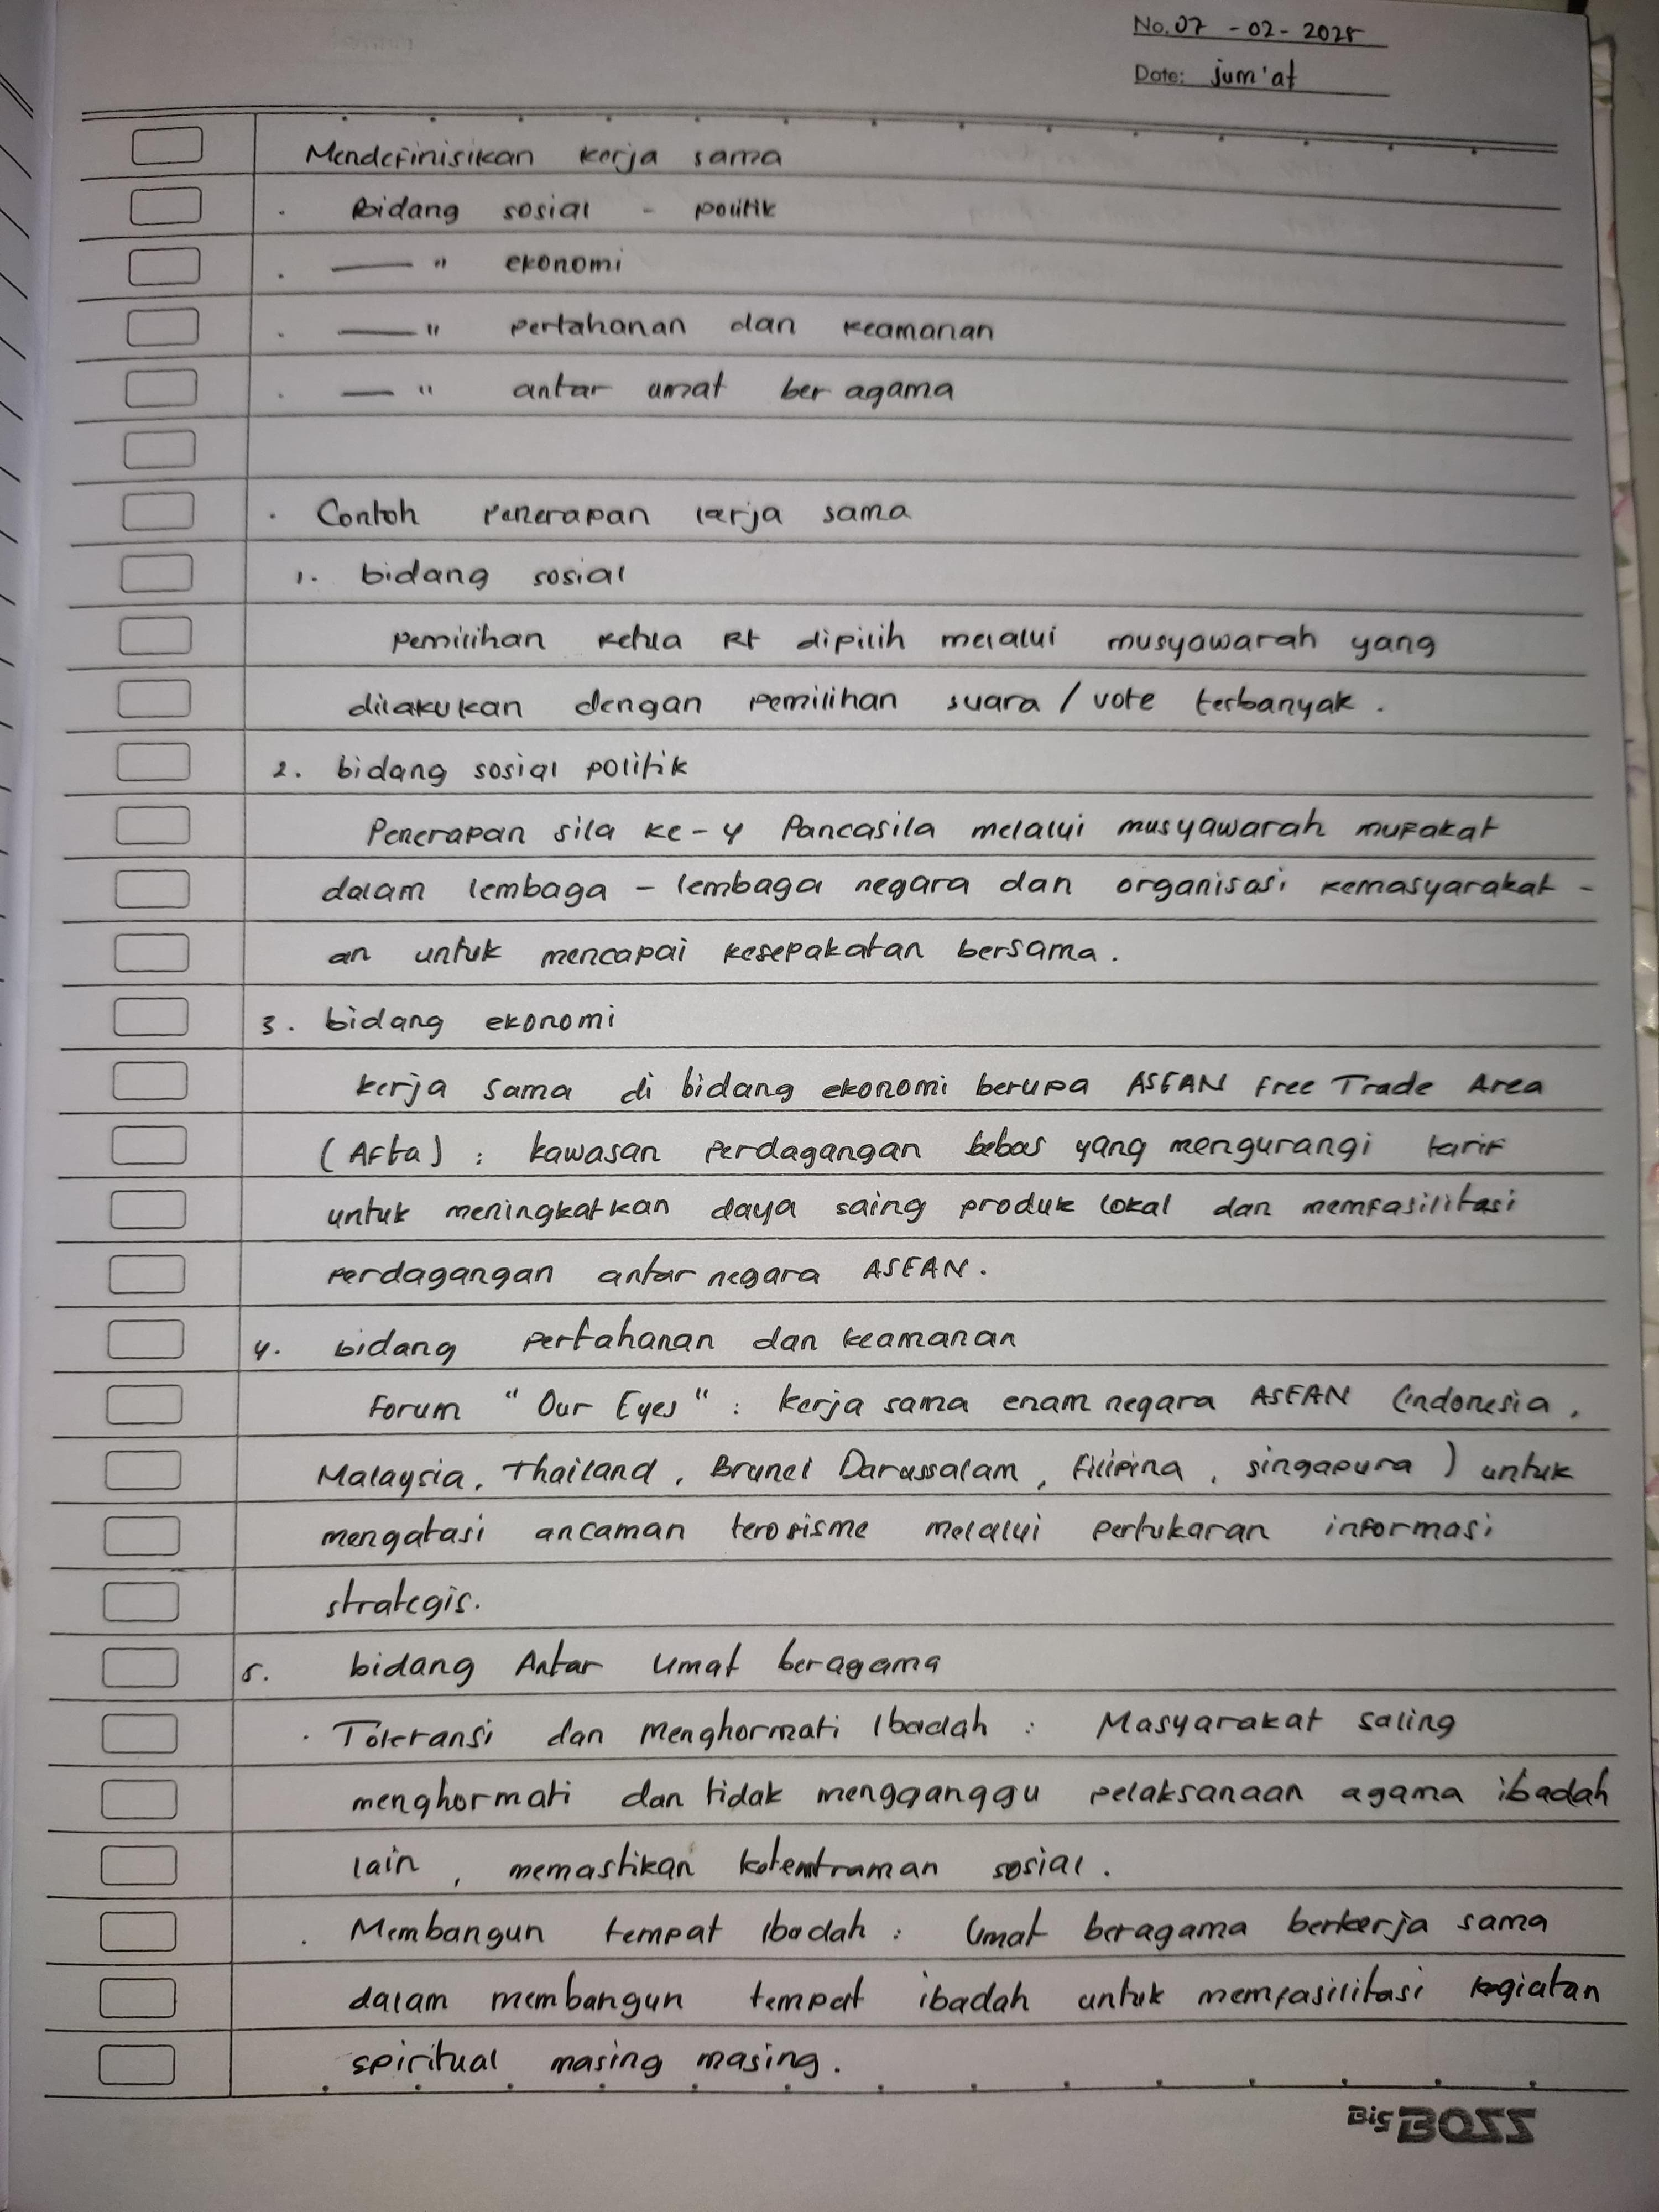 No. 07 - 02 - 2025
Date: jum'at
Mendefinisikan kerja sama
. Bidang sosial - politik
. —— " ekonomi
. —— " pertahanan dan keamanan
. —— " antar umat ber agama
. Contoh Penerapan kerja sama
1. bidang sosial
Pemilihan ketua Rt dipilih melalui musyawarah yang
dilakukan dengan pemilihan suara / vote terbanyak .
2. bidang sosial politik
Penerapan sila ke-4 Pancasila melalui musyawarah mufakat
dalam lembaga - lembaga negara dan organisasi kemasyarakat -
an untuk mencapai kesepakatan bersama .
3. bidang ekonomi
kerja sama di bidang ekonomi berupa ASEAN Free Trade Area
(Afta) : kawasan Perdagangan bebas yang mengurangi tarif
untuk meningkatkan daya saing produk lokal dan memfasilitasi
Perdagangan antar negara ASEAN .
4. bidang pertahanan dan keamanan
Forum " Our Eyes " : kerja sama enam negara ASEAN (indonesia ,
Malaysia , Thailand , Brunei Darussalam , Filipina , singapura ) untuk
mengatasi ancaman terorisme melalui pertukaran informasi
strategis.
5. bidang Antar Umat beragama
. Toleransi dan Menghormati Ibadah : Masyarakat saling
menghormati dan tidak mengganggu pelaksanaan agama ibadah
lain , memastikan ketentraman sosial .
. Membangun tempat Ibadah : Umat beragama berkerja sama
dalam membangun tempat ibadah untuk memfasilitasi kegiatan
spiritual masing masing .
Big BOSS